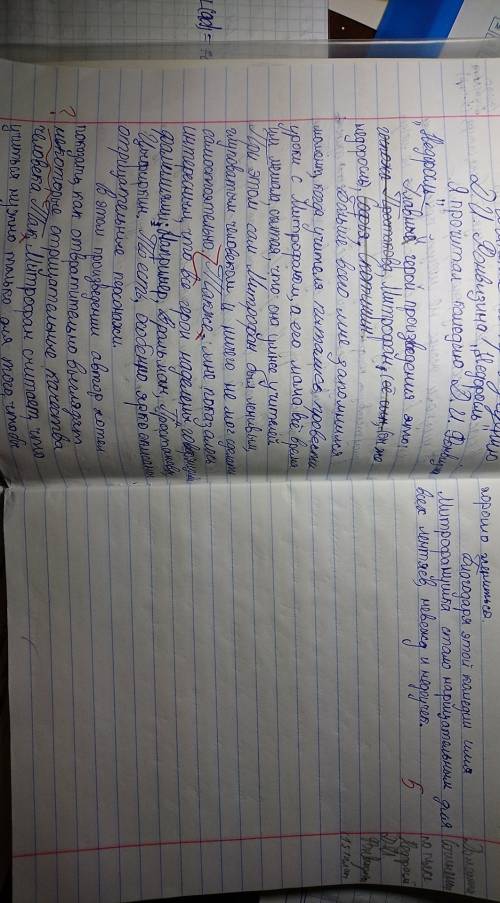 Д.И. Фонвизина "Недоросль"
Я прочитал комедию Д.И.
"Недросль". Главные герои произведения это:
Митрофан, он же
недоросль,
Больше всего мне запомнился
момент, когда учителя пытались провести
уроки с Митрофаном, а его мама всё время
им мешала, считая, что она умнее учителей.
При этом сам Митрофан был ленивым,
глуповатым человеком и ничего не мог сделать
самостоятельно. Также, мне показалось
интересным, что все герои наделены говорящими
фамилиями, например, Вральман,
Цыфиркин. То есть, особенно ярко описаны
отрицательные персонажи.
В этом произведении автор хотел
показать, как отвратительно выглядят
? некоторые отрицательные качества
человека. Так, Митрофан считает, что
учиться нужно только для того, чтобы
хорошо жениться.
Благодаря этой комедии имя
Митрофанушка стало нарицательным для
всех лентяев, невежд и недоучек.
5